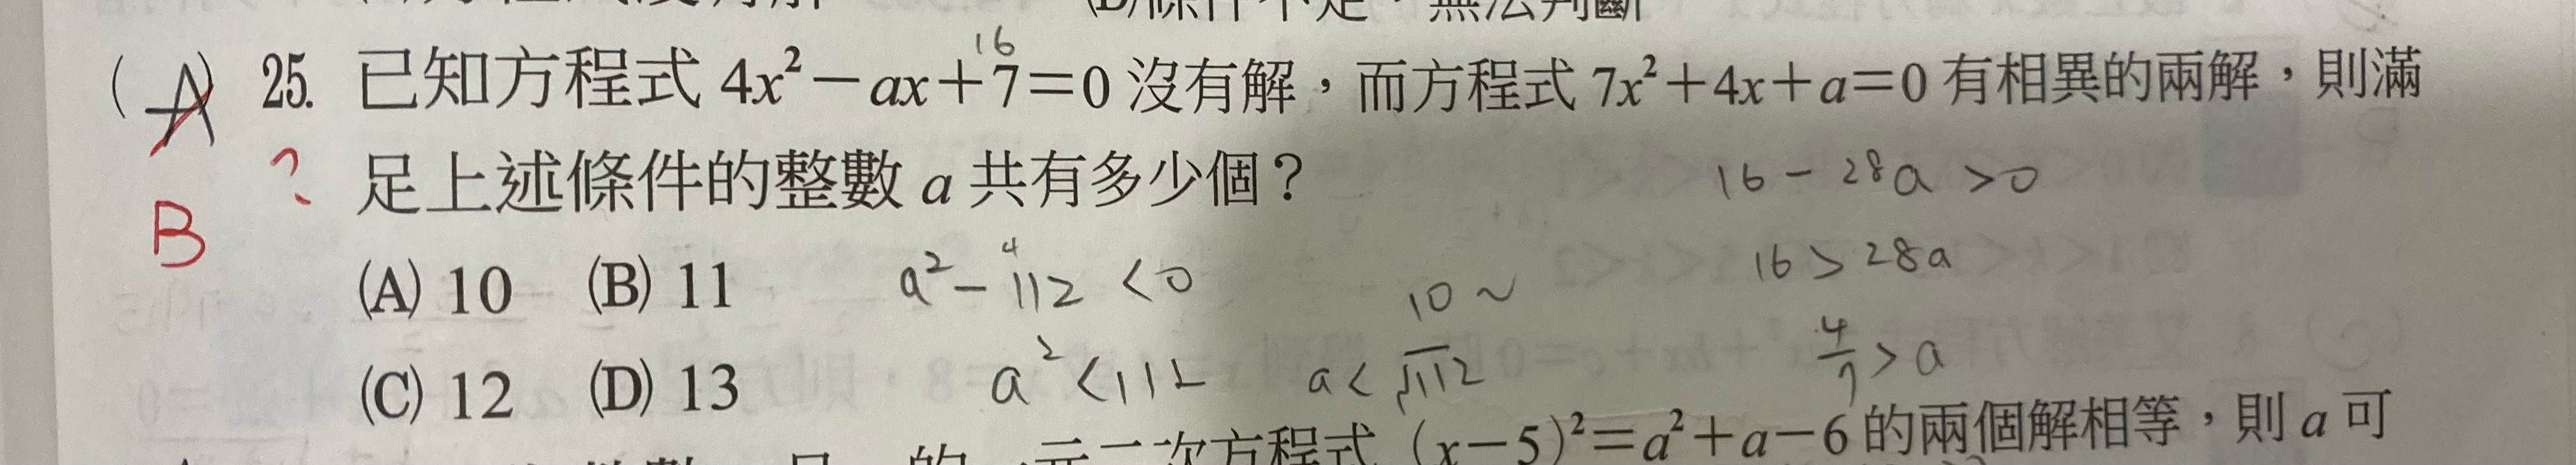 (D)條件不足，無法判斷
16
( A ) 25. 已知方程式 4x²－ax＋7＝0 沒有解，而方程式 7x²＋4x＋a＝0 有相異的兩解，則滿
? 足上述條件的整數 a 共有多少個？ 16 - 28a > 0
B
(A) 10 (B) 11 a² - 112 < 0 10 ~ 16 > 28a
4
(C) 12 (D) 13 a² < 112 a < √112 4/7 > a
(x－5)²＝a²＋a－6 的兩個解相等，則 a 可